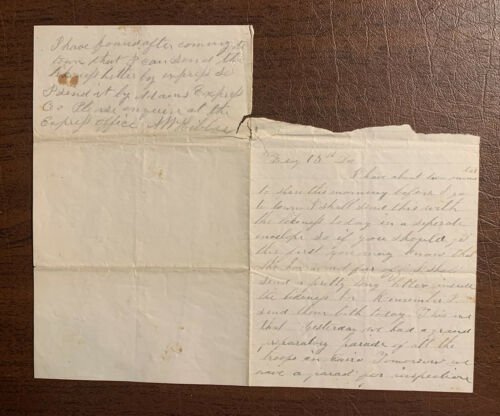 I have found after coming to
town that I can send the
likeness better by express so
I send it by Adams Express
Co Please enquire at the
Express office
Dec 15th
I have about two minutes
to spare this morning before I go
to town I shall send this with
the likeness today in a seperate
envelope so if you should get
this first you may know that
the box is not far off I shall
send a pretty long letter inside
the likeness box Remember I
send them both today This is
that Yesterday we had a grand
preparatory parade of all the
troops in Cairo Tomorrow we
have a parade for inspection